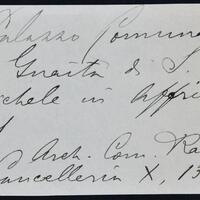 Palazzo Comuna
Guaita di S.
chele in Affri
Arch. Com. Ra
ancelleria X, 13